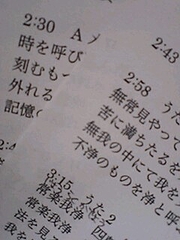 2:30 A
時を呼び
刻むも
外れる
記憶
2:43
2:58 うた
無常見やって
苦に満ちたるを
無我の中にて我を
不浄のものを浄と呼
3:15 うた2
常楽我浄
常楽我浄
法を見